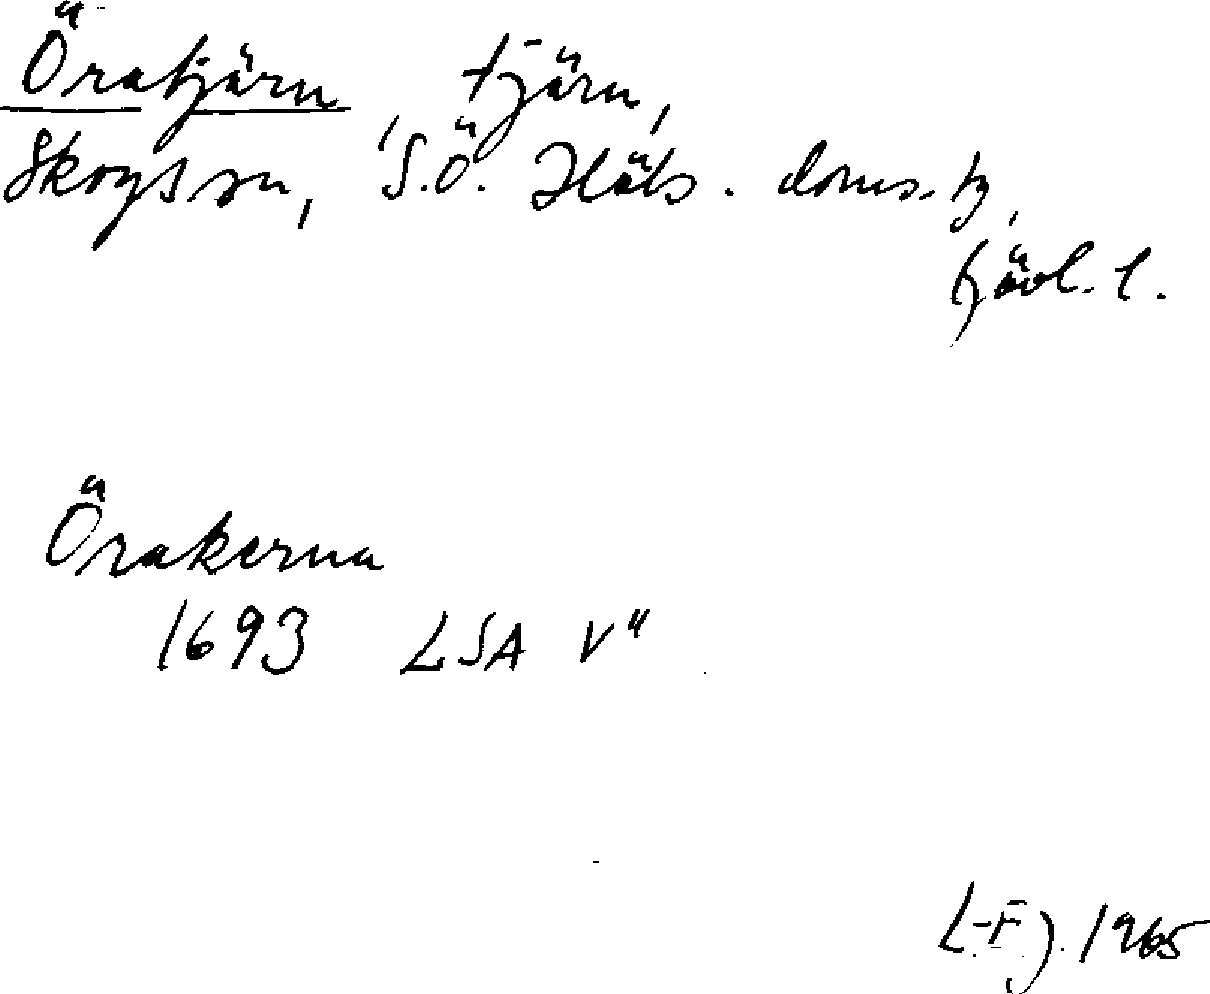 Öratjärn, tjärn,
Skogs sn, S.Ö. Häls. doms.tg,
Gävl. l.
Örakerna
1693 LSA V"
L-Fj. 1965